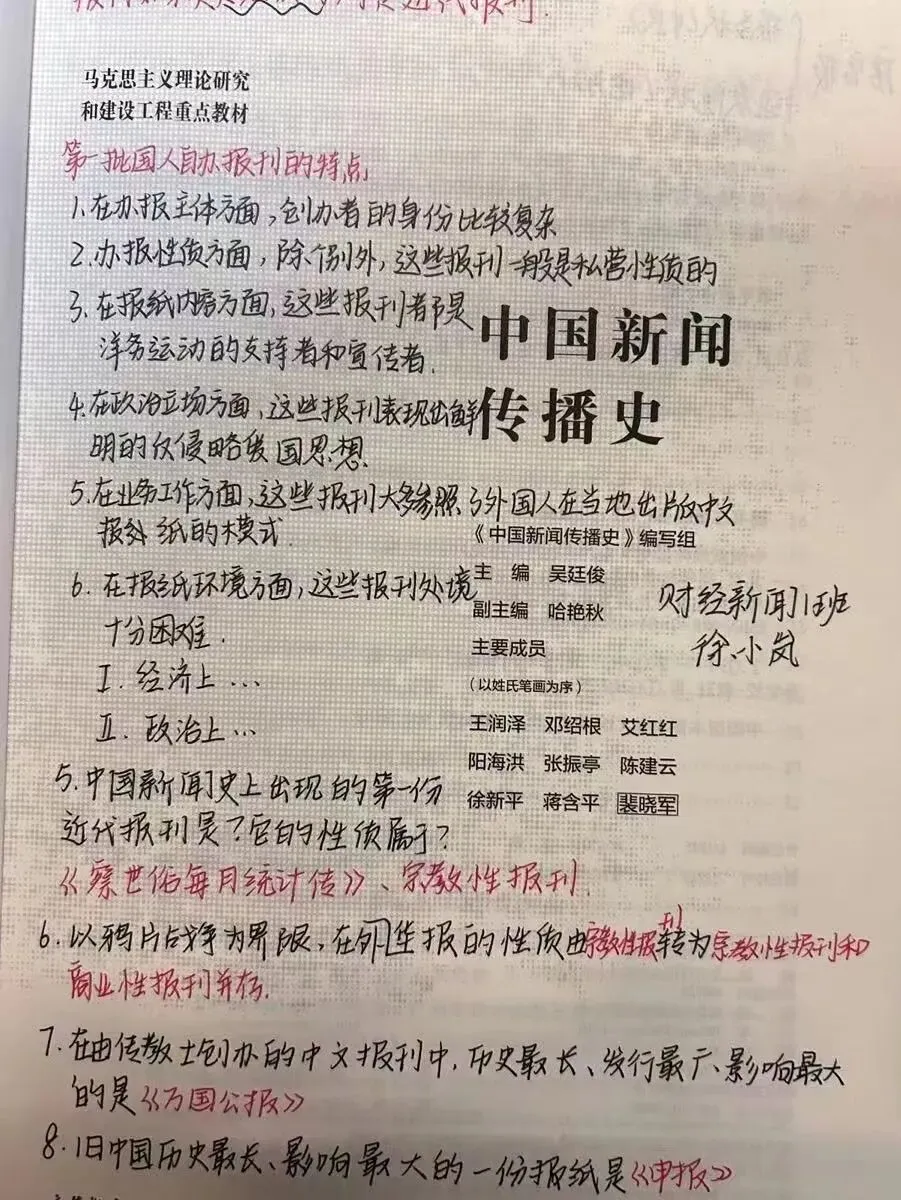 马克思主义理论研究
和建设工程重点教材
第一批国人自办报刊的特点
1.在办报主体方面,创办者的身份比较复杂
2.办报性质方面,除个别外,这些报刊一般是私营性质的
3.在报纸内容方面,这些报刊都是
洋务运动的支持者和宣传者.
中国新闻
传播史
4.在政治立场方面,这些报刊表现出鲜
明的反侵略爱国思想
5.在业务工作方面,这些报刊大多参照了外国人在当地出版中文
报纸的模式
《中国新闻传播史》编写组
主 编 吴廷俊
副主编 哈艳秋
主要成员
(以姓氏笔画为序)
王润泽 邓绍根 艾红红
阳海洪 张振亭 陈建云
徐新平 蒋含平 裴晓军
财经新闻1班
徐小岚
6.在报纸环境方面,这些报刊处境
十分困难.
Ⅰ.经济上...
Ⅱ.政治上...
5.中国新闻史上出现的第一份
近代报刊是?它的性质属于?
《察世俗每月统计传》、宗教性报刊.
6.以鸦片战争为界限,在外华报的性质由宗教性报刊转为宗教性报刊和
商业性报刊并存.
7.在由传教士创办的中文报刊中,历史最长、发行最广、影响最大
的是《万国公报》
8.旧中国历史最长、影响最大的一份报纸是《申报》